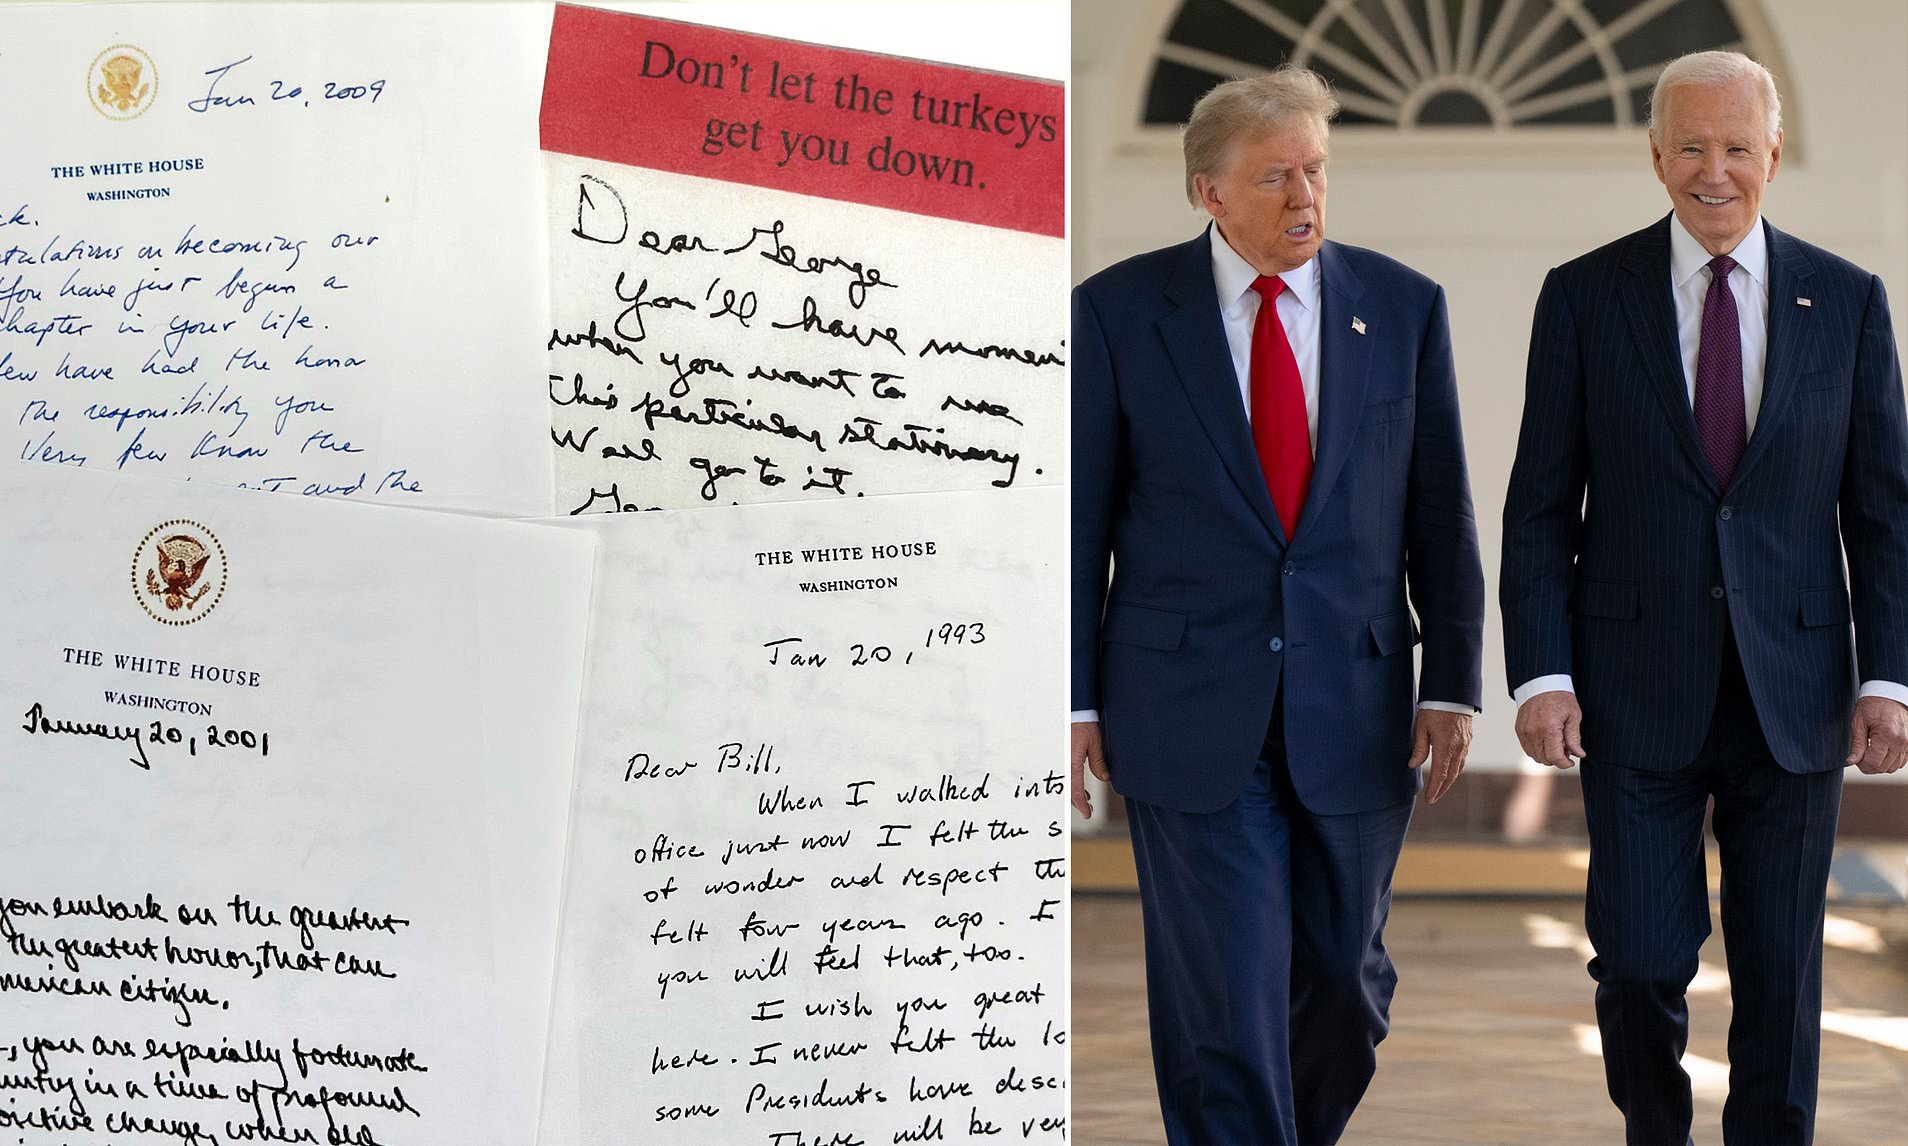 Jan 20, 2009
THE WHITE HOUSE
WASHINGTON
ck.
atulations on becoming our
You have just begun a
chapter in your life.
few have had the honor
the responsibility you
Very few know the
and the
Don't let the turkeys
get you down.
Dear George
You'll have momen
when you want to use
this particular stationery.
Well go to it.
THE WHITE HOUSE
WASHINGTON
January 20, 2001
you embark on the greatest
the greatest honor, that can
merican citizen.
, you are especially fortunate
untry in a time of profound
ositive change, when old
THE WHITE HOUSE
WASHINGTON
Jan 20, 1993
Dear Bill,
When I walked into
office just now I felt the s
of wonder and respect th
felt four years ago. I
you will feel that, too.
I wish you great
here. I never felt the lo
some Presidents have desc
There will be ver